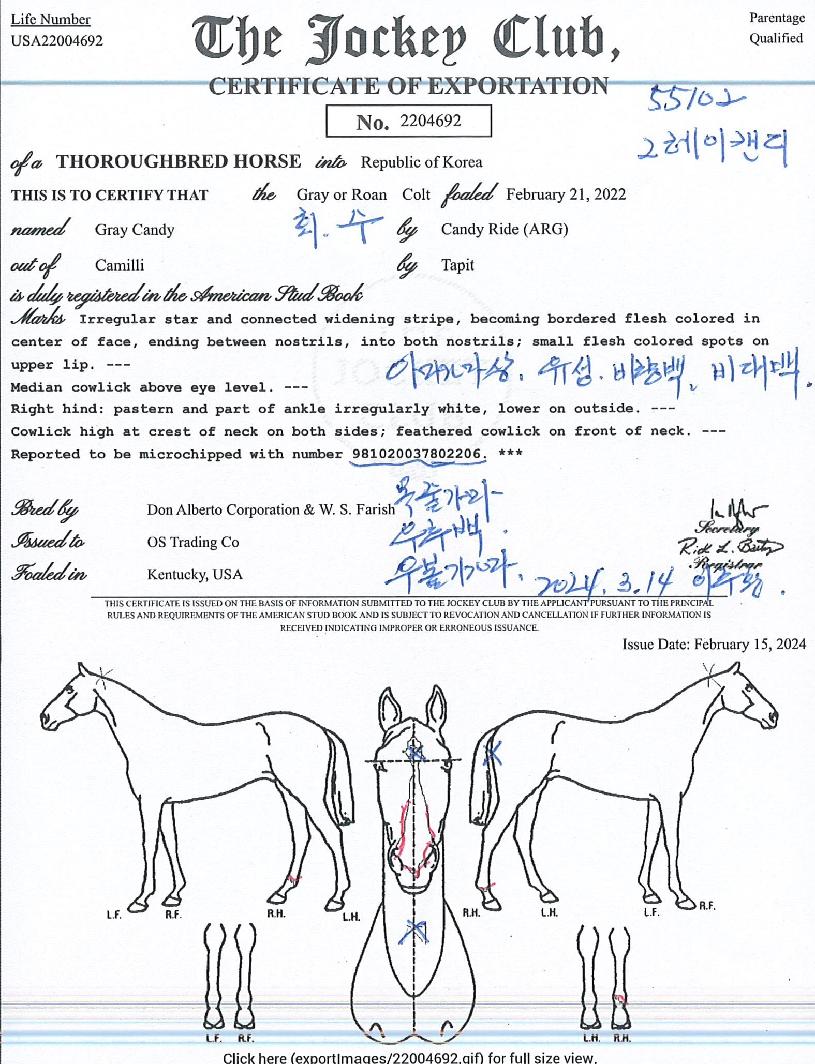 Life Number
USA22004692
The Jockey Club,
Parentage
Qualified
CERTIFICATE OF EXPORTATION
55102
No. 2204692
그레이캔디
of a THOROUGHBRED HORSE into Republic of Korea
THIS IS TO CERTIFY THAT the Gray or Roan Colt foaled February 21, 2022
named Gray Candy 회. 수 by Candy Ride (ARG)
out of Camilli by Tapit
is duly registered in the American Stud Book
Marks Irregular star and connected widening stripe, becoming bordered flesh colored in
center of face, ending between nostrils, into both nostrils; small flesh colored spots on
upper lip. ---
유성. 비량백, 비대백.
Median cowlick above eye level. ---
Right hind: pastern and part of ankle irregularly white, lower on outside. ---
Cowlick high at crest of neck on both sides; feathered cowlick on front of neck. ---
Reported to be microchipped with number 981020037802206. ***
목줄가마
Bred by Don Alberto Corporation & W. S. Farish
우후백.
Secretary
Issued to OS Trading Co
Registrar
Foaled in Kentucky, USA
2024. 3. 14
THIS CERTIFICATE IS ISSUED ON THE BASIS OF INFORMATION SUBMITTED TO THE JOCKEY CLUB BY THE APPLICANT PURSUANT TO THE PRINCIPAL
RULES AND REQUIREMENTS OF THE AMERICAN STUD BOOK AND IS SUBJECT TO REVOCATION AND CANCELLATION IF FURTHER INFORMATION IS
RECEIVED INDICATING IMPROPER OR ERRONEOUS ISSUANCE.
Issue Date: February 15, 2024
L.F. R.F. R.H. L.H. R.H. L.H. L.F. R.F.
L.F. R.F. L.H. R.H.
Click here (exportImages/22004692.gif) for full size view.